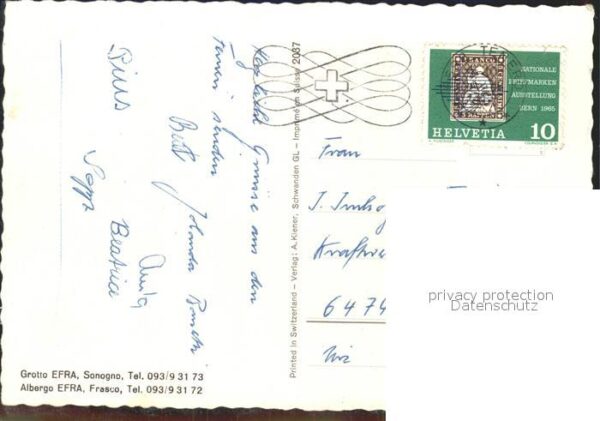 Herzliche Grüsse aus den
Ferien senden
Beat Jolanda
Pius Anita
Sepp Beatrice
Grotto EFRA, Sonogno, Tel. 093/9 31 73
Albergo EFRA, Frasco, Tel. 093/9 31 72
Printed in Switzerland – Verlag: A. Kiener, Schwanden GL – Imprimé en Suisse 2037
NATIONALE
BRIEFMARKEN
AUSSTELLUNG
BERN 1965
FRANCO
5 RAPPEN
HELVETIA 10
TENERO
Frau
J. Imhog
Kraftwe
6474
Uri
privacy protection
Datenschutz